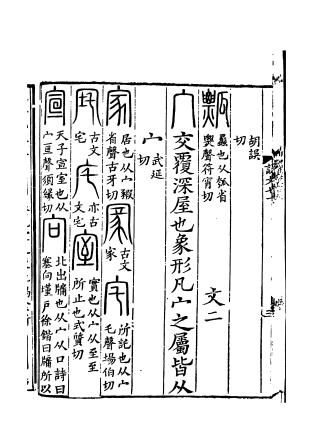 胡誤
切
瓢
蠡也从瓠省
㶾聲符宵切
文二
宀
交覆深屋也象形凡宀之屬皆从
宀
武延
切
家
居也从宀豭
省聲古牙切
古文
家
宅
所託也从宀
乇聲場伯切
古文
宅
亦古
文宅
室
實也从宀从至至
所止也式質切
宣
天子宣室也从
宀亘聲須緣切
向
北出牖也从宀从口詩曰
塞向墐戶徐鍇曰牖所以